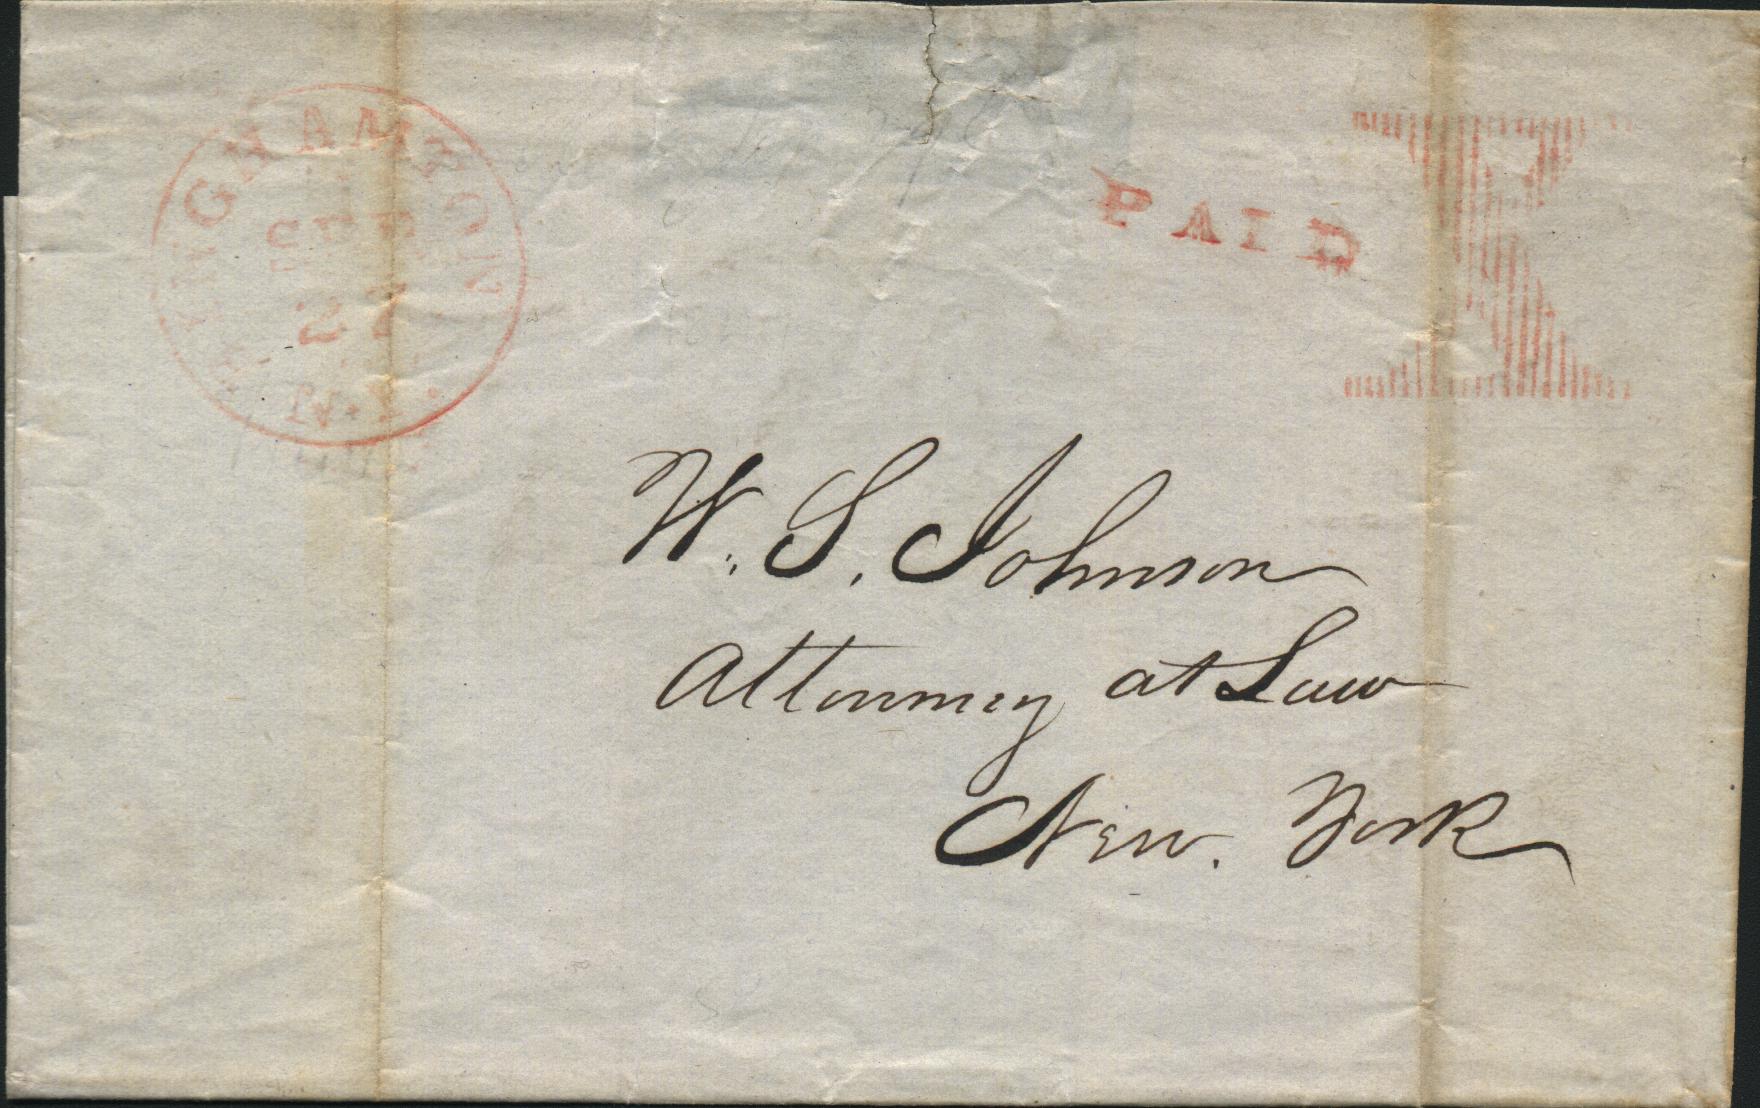 BINGHAMTON
SEP
27
N.Y.
PAID
X
W. S. Johnson
Attorney at Law
New. York